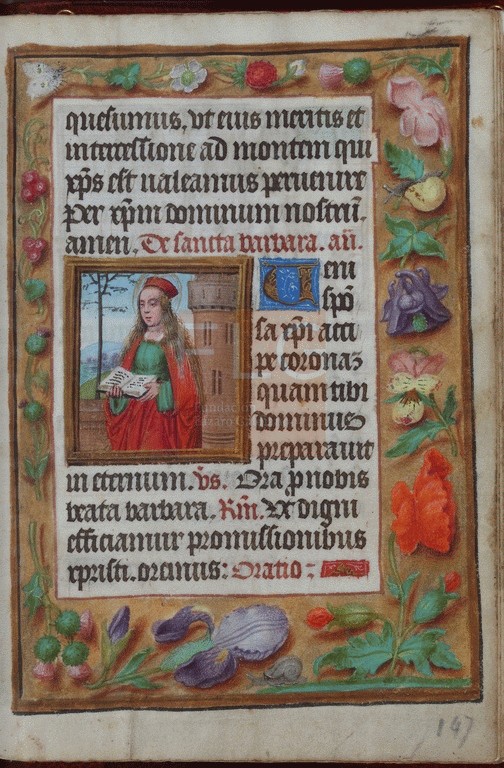 quesumus, vt eius meritis et
intercessione ad montem qui
xp̄s est ualeamus peruenire
Per xp̄m dominum nostrū.
amen. De sancta barbara. añ.
Ueni
spō
sa xp̄i acci
pe coronaz
quam tibi
dominus
preparauit
in eternum. v̄s. Ora p̄ nobis
beata barbara. Rm̄. Vt digni
efficiamur promissionibus
xpristi. oremus: Oratio:
Fundación
Lázaro Ga
147